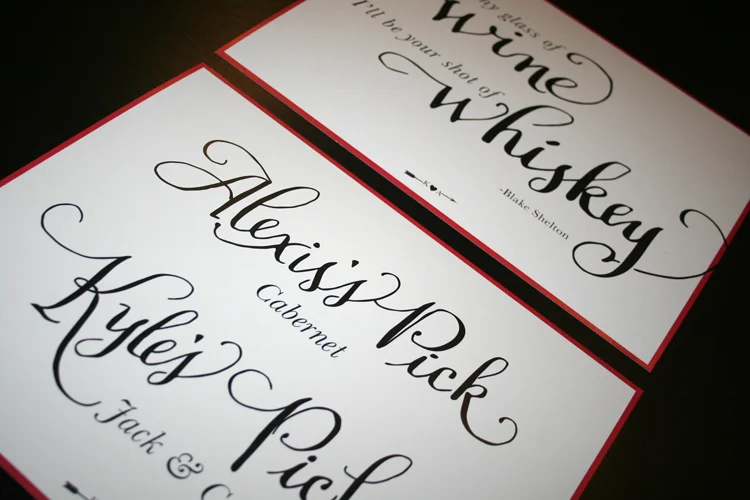 glass of
Wine
I'll be your shot of
Whiskey
-Blake Shelton
K ♥ A
Alexis's Pick
Cabernet
Kyle's
Jack &